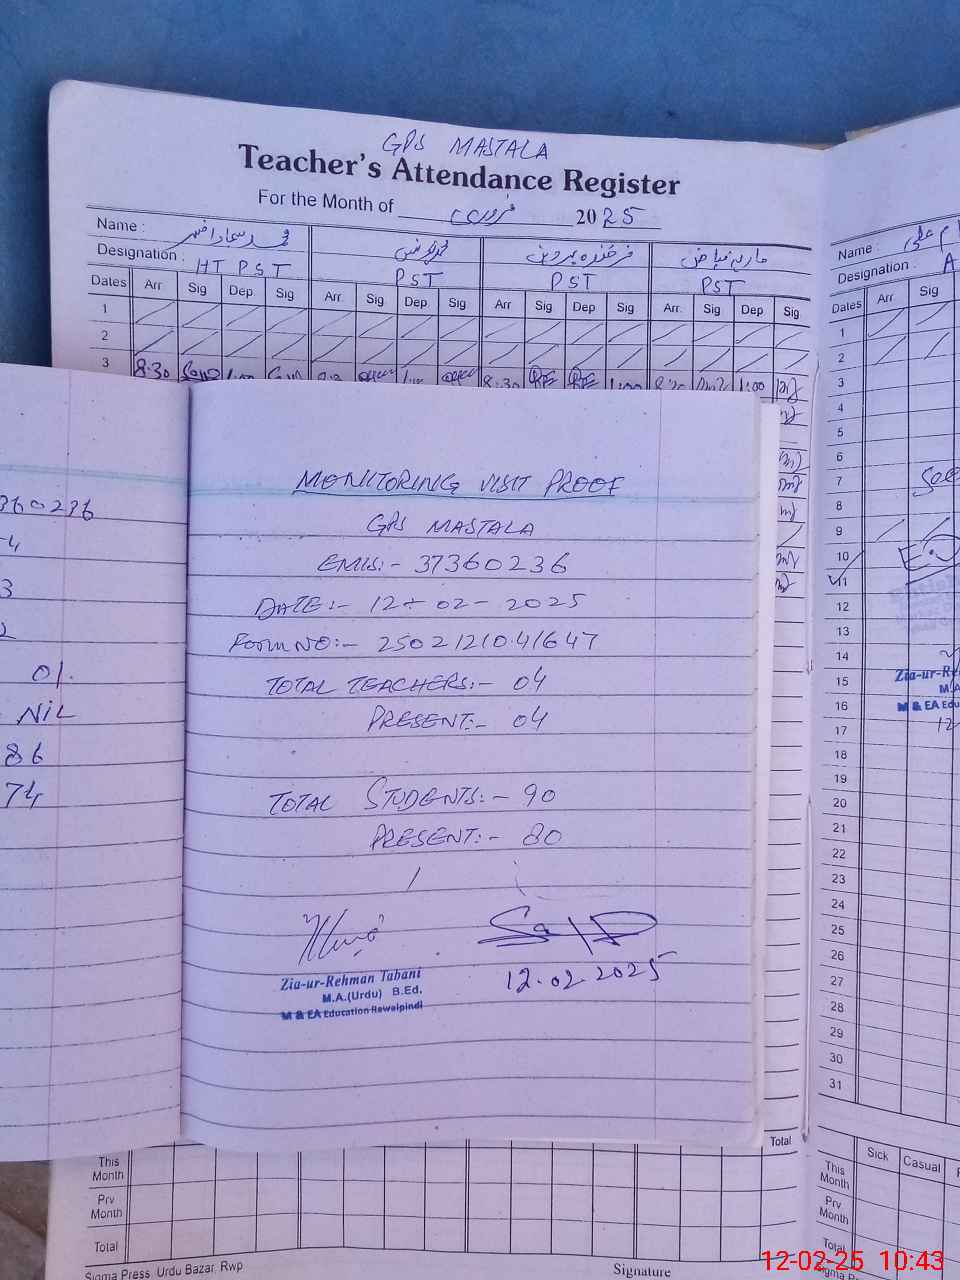 GPS MASTALA
Teacher's Attendance Register
For the Month of فروری 2025
Name :
Designation : HT PST PST PST PST
Dates Arr. Sig Dep. Sig Arr. Sig Dep. Sig Arr. Sig Dep Sig Arr. Sig Dep Sig.
1
2
3 8:30 8:30 1:00 1:00
MONITORING VISIT PROOF
GPS MASTALA
EMIS:- 37360236
DATE:- 12-02-2025
FORM NO:- 2502121041647
TOTAL TEACHERS:- 04
PRESENT:- 04
TOTAL STUDENTS:- 90
PRESENT:- 80
12.02.2025
Zia-ur-Rehman Tabani
M.A.(Urdu) B.Ed.
M & EA Education Rawalpindi
360236
-4
3
01.
NIL
86
74
Name :
Designation : A
Dates Arr. Sig
1
2
3
4
5
6
7
8
9
10
11
12
13
14
15
16
17
18
19
20
21
22
23
24
25
26
27
28
29
30
31
Zia-ur-Re
M.A
M & EA Edu
12
Total
This Month
Prv Month
Total
Sigma Press, Urdu Bazar, Rwp
Signature
Sick Casual
This Month
Prv Month
Total
Sigma Pre
12-02-25 10:43